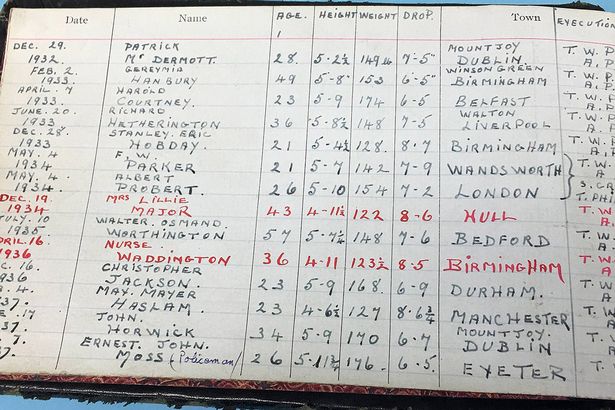 Date Name AGE. HEIGHT WEIGHT DROP. Town EXECUTION
DEC. 29. PATRICK MOUNTJOY
1932. Mc DERMOTT. 28. 5-2½ 149¾ 7-5" DUBLIN. T. W. P
FEB. 2. GEREYMIA WINSON GREEN A. P.
1933. HANBURY 49 5-8" 153 6-5" BIRMINGHAM T. W. P
APRIL. 7 HAROLD
1933. COURTNEY. 23 5-9 174 6-5 BELFAST T. W. P
JUNE. 20. RICHARD. WALTON
1933. HETHERINGTON 36 5-8½ 148 7-5 LIVERPOOL
DEC. 28 STANLEY. ERIC
1933 HOBDAY. 21 5-4½ 128. 8.7 BIRMINGHAM
MAY. 4 F. W.
1934 PARKER 21 5.7 142 7-9 WANDSWORTH
MAY. 4. ALBERT
1934. PROBERT. 26 5-10 154 7-2 LONDON
DEC. 19. MRS LILLIE
1934 MAJOR 43 4-11½ 122 8-6 HULL T. W.
JULY. 10 WALTER. OSMAND.
1935 WORTHINGTON 57 5-7¼ 148 7-6 BEDFORD
APRIL. 16. NURSE
1936 WADDINGTON 36 4-11 123½ 8.5 BIRMINGHAM
C. 16. CHRISTOPHER
936 JACKSON. 23 5.9 168 6-9 DURHAM.
. 4. MAX. MAYER
37. HASLAM. 23 4-6½ 127 8.6¾ MANCHESTER
E. 17 JOHN. MOUNTJOY.
37. HORWICK 34 5.9 170 6-7 DUBLIN
7. ERNEST. JOHN.
7. MOSS (Policeman) 26 5-11½ 176. 6.5 EXETER